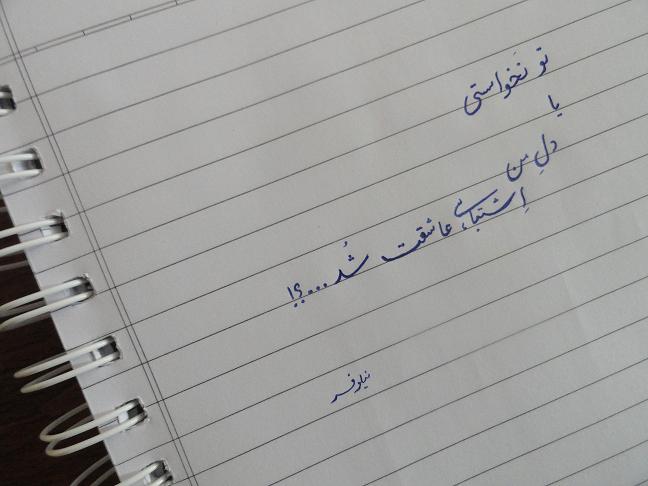 تو نَخواستی
یا
دلِ من
اِشتباهی عاشقت شُد...؟!
نیلوفر